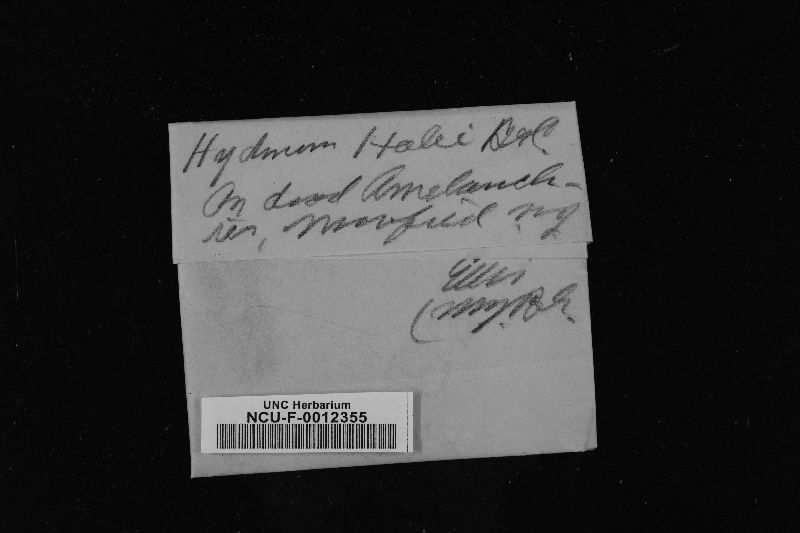 Hydnum Halei B&C.
On dead Amelanch-
ier, Newfield N.J
Ellis
(N.Y.B.G.
UNC Herbarium
NCU-F-0012355